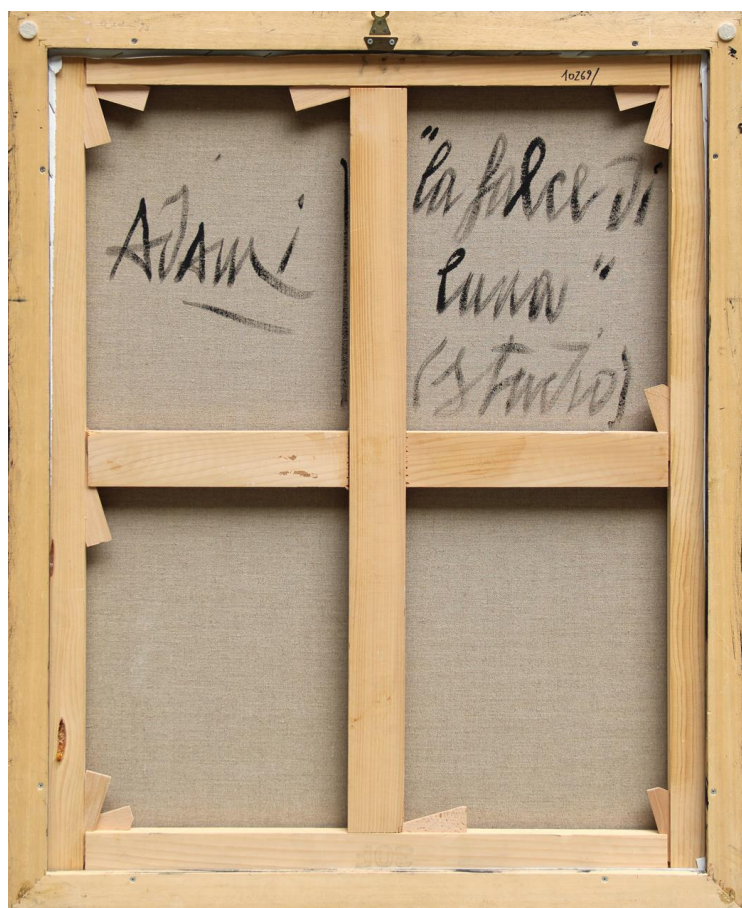 10269/
Adami
"la falce di
luna"
(studio)